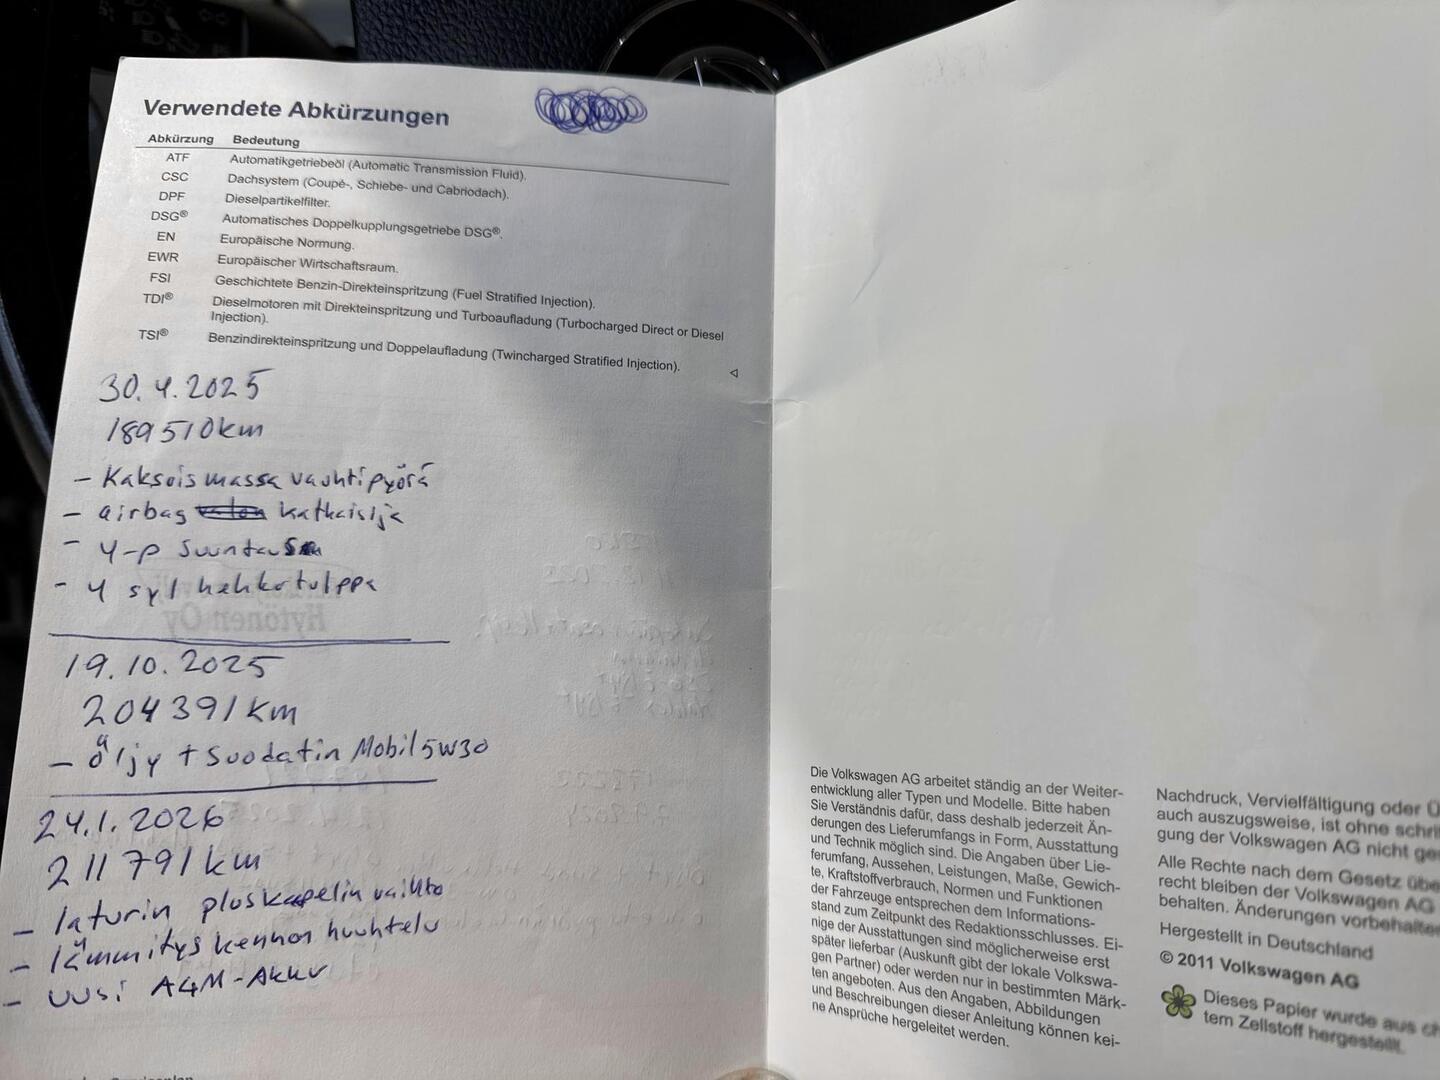 Verwendete Abkürzungen
Abkürzung Bedeutung
ATF Automatikgetriebeöl (Automatic Transmission Fluid).
CSC Dachsystem (Coupé-, Schiebe- und Cabriodach).
DPF Dieselpartikelfilter.
DSG® Automatisches Doppelkupplungsgetriebe DSG®.
EN Europäische Normung.
EWR Europäischer Wirtschaftsraum.
FSI Geschichtete Benzin-Direkteinspritzung (Fuel Stratified Injection).
TDI® Dieselmotoren mit Direkteinspritzung und Turboaufladung (Turbocharged Direct or Diesel
Injection).
TSI® Benzindirekteinspritzung und Doppelaufladung (Twincharged Stratified Injection).
30.4.2025
189510km
- Kaksoismassa vauhtipyörä
- airbag katkaisija
- 4-p suuntaus
- 4 syl hehkutulppa
19.10.2025
204391km
- öljy + suodatin Mobil 5W30
24.1.2026
211791km
- laturin pluskapelin vaihto
- lämmityskennon huuhtelu
- uusi AGM-Akku
Die Volkswagen AG arbeitet ständig an der Weiter-
entwicklung aller Typen und Modelle. Bitte haben
Sie Verständnis dafür, dass deshalb jederzeit Än-
derungen des Lieferumfangs in Form, Ausstattung
und Technik möglich sind. Die Angaben über Lie-
ferumfang, Aussehen, Leistungen, Maße, Gewich-
te, Kraftstoffverbrauch, Normen und Funktionen
der Fahrzeuge entsprechen dem Informations-
stand zum Zeitpunkt des Redaktionsschlusses. Ei-
nige der Ausstattungen sind möglicherweise erst
später lieferbar (Auskunft gibt der lokale Volkswa-
gen Partner) oder werden nur in bestimmten Märk-
ten angeboten. Aus den Angaben, Abbildungen
und Beschreibungen dieser Anleitung können kei-
ne Ansprüche hergeleitet werden.
Nachdruck, Vervielfältigung oder Ü
auch auszugsweise, ist ohne schri
gung der Volkswagen AG nicht ge
Alle Rechte nach dem Gesetz übe
recht bleiben der Volkswagen AG
behalten. Änderungen vorbehalte
Hergestellt in Deutschland
© 2011 Volkswagen AG
Dieses Papier wurde aus ch
tem Zellstoff hergestellt.